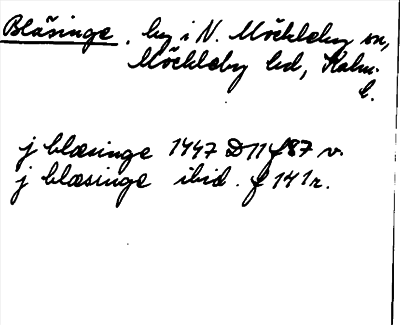 Bläsinge. by i N. Möckleby sn,
Möckleby hd, Kalm.
l.
j blæsinge 1447 D11 f87 v.
j blæsinge ibid. f 141r.